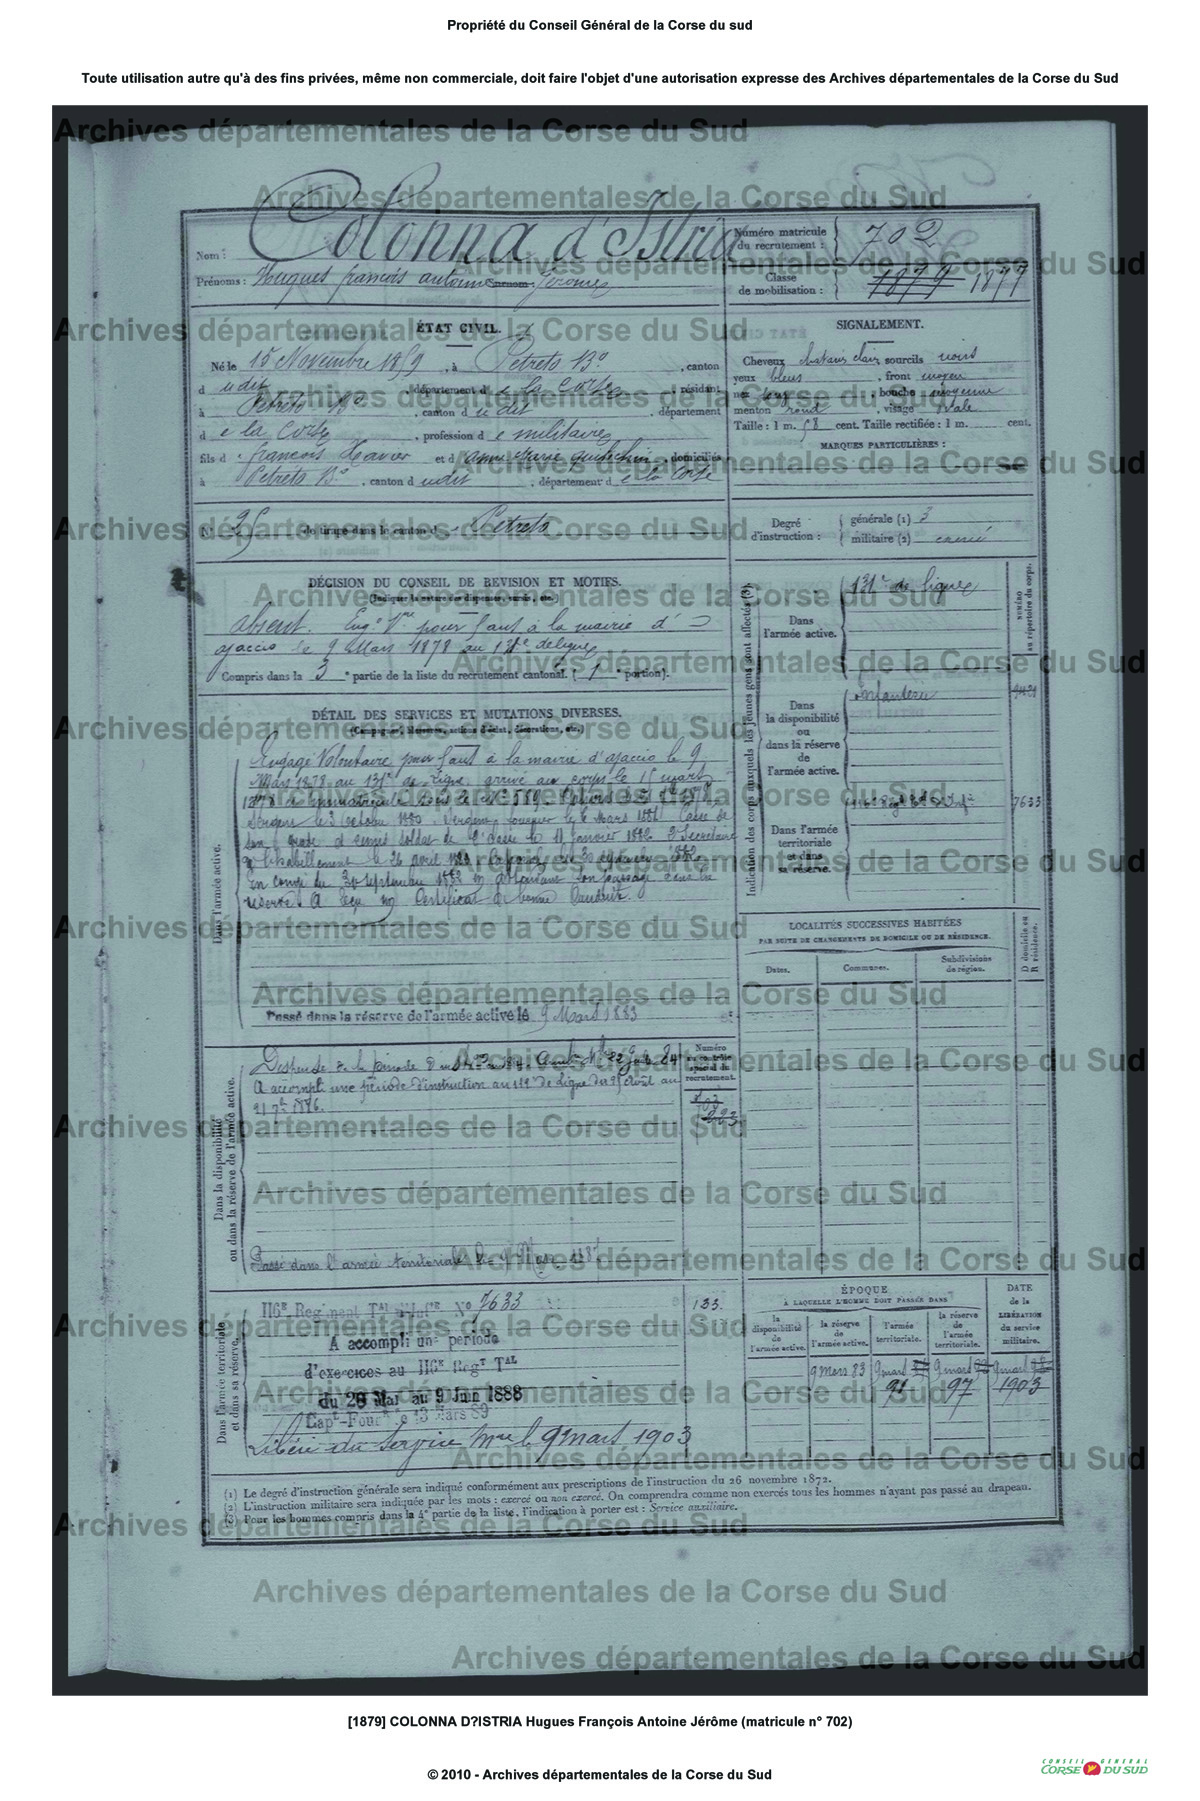 Propriété du Conseil Général de la Corse du sud
Toute utilisation autre qu'à des fins privées, même non commerciale, doit faire l'objet d'une autorisation expresse des Archives départementales de la Corse du Sud
Archives départementales de la Corse du Sud
Nom : Colonna d'Istria
Prénoms : Hugues françois antoine Jérome
Numéro matricule du recrutement : 702
Classe de mobilisation : 1879 1877
ÉTAT CIVIL.
Né le 15 Novembre 1859, à Petreto Bo, canton
d udit, département d e la Corse, résidant
à Petreto Bo, canton d udit, département
d e la Corse, profession d e militaire
fils d françois Xavier et d anne Marie, domiciliés
à Petreto Bo, canton d udit, département d e la Corse
N° 25 de tirage dans le canton d Petreto
SIGNALEMENT.
Cheveux chatain clair sourcils noirs
yeux bleus, front moyen
nez long, bouche moyenne
menton rond, visage ovale
Taille : 1 m. 58 cent. Taille rectifiée : 1 m. cent.
MARQUES PARTICULIÈRES :
Degré d'instruction : générale (1) 3
militaire (2) exercé
DÉCISION DU CONSEIL DE REVISION ET MOTIFS.
(Indiquer la nature des dispenses, sursis, etc.)
Absent. Engé Vre pour 5 ans à la mairie d'
ajaccio le 9 Mars 1878 au 131e de ligne
Compris dans la 3e partie de la liste du recrutement cantonal. (1e portion).
DÉTAIL DES SERVICES ET MUTATIONS DIVERSES.
(Campagnes, blessures, actions d'éclat, décorations, etc.)
Dans l'armée active.
Engagé Volontaire pour 5 ans à la mairie d'ajaccio le 9
Mars 1878 au 131e de Ligne, arrivé au corps le 15 mart
1878 & immatriculé sous le No 589. Caporal 1878,
Sergent le 3 octobre 1880. Sergent fourrier le 6 Mars 1881. Cassé de
son grade et remis soldat de 2e classe le 11 janvier 1882. Secrétaire
de l'habillement le 26 avril Caporal le 30 septembre 1882
En congé du 30 septembre 1882 en attendant son passage dans la
réserve. A reçu un Certificat de bonne Conduite.
Passé dans la réserve de l'armée active le 9 Mars 1883
Dans la disponibilité ou dans la réserve de l'armée active.
Dispensé de la période d'
A accompli une période d'instruction au 119e de Ligne du 25 Avril au
1886.
Passé dans l'armée territoriale le 9 Mars 188
Numéro au contrôle spécial du recrutement.
703
993
Dans l'armée territoriale et dans sa réserve.
116e Régiment Tal d'Infie No 7633
133.
A accompli une période
d'exercices au 116e Regt Tal
du 28 Mai au 9 Juin 1888
Capl-Fourr le 13 Mars 89
Libéré du Service Mre le 9 mart 1903
Indication des corps auxquels les jeunes gens sont affectés (3).
NUMÉRO au répertoire du corps.
Dans l'armée active.
131e de ligne
Dans la disponibilité ou dans la réserve de l'armée active.
Infanterie
Dans l'armée territoriale et dans sa réserve.
116e Regt
7633
LOCALITÉS SUCCESSIVES HABITÉES
PAR SUITE DE CHANGEMENTS DE DOMICILE OU DE RÉSIDENCE.
Dates. Communes. Subdivisions de région. D domicile ou R résidence.
ÉPOQUE
À LAQUELLE L'HOMME DOIT PASSER DANS
la disponibilité de l'armée active. la réserve de l'armée active. l'armée territoriale. la réserve de l'armée territoriale.
DATE de la LIBÉRATION du service militaire.
9 Mars 83 9 mart 91 9 mart 97 9 mart 1903
(1) Le degré d'instruction générale sera indiqué conformément aux prescriptions de l'instruction du 26 novembre 1872.
(2) L'instruction militaire sera indiquée par les mots : exercé ou non exercé. On comprendra comme non exercés tous les hommes n'ayant pas passé au drapeau.
(3) Pour les hommes compris dans la 4e partie de la liste, l'indication à porter est : Service auxiliaire.
[1879] COLONNA D?ISTRIA Hugues François Antoine Jérôme (matricule n° 702)
© 2010 - Archives départementales de la Corse du Sud
CONSEIL GENERAL
CORSE DU SUD